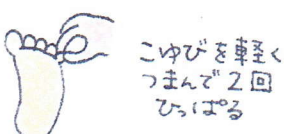 こゆびを軽く
つまんで2回
ひっぱる